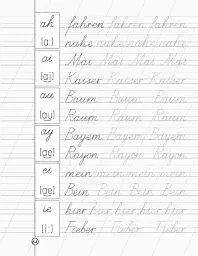 ah fahren fahren fahren
[a:] nahe nahe nahe nahe
ai Mai Mai Mai Mai
Kaiser Kaiser Kaiser
au Baum Baum Baum
Raum Raum Raum
ay Bayern Bayern Bayern
Rayon Rayon Rayon
ei mein mein mein mein
Bein Bein Bein Bein
ie hier hier hier hier hier
[i:] Fieber Fieber Fieber